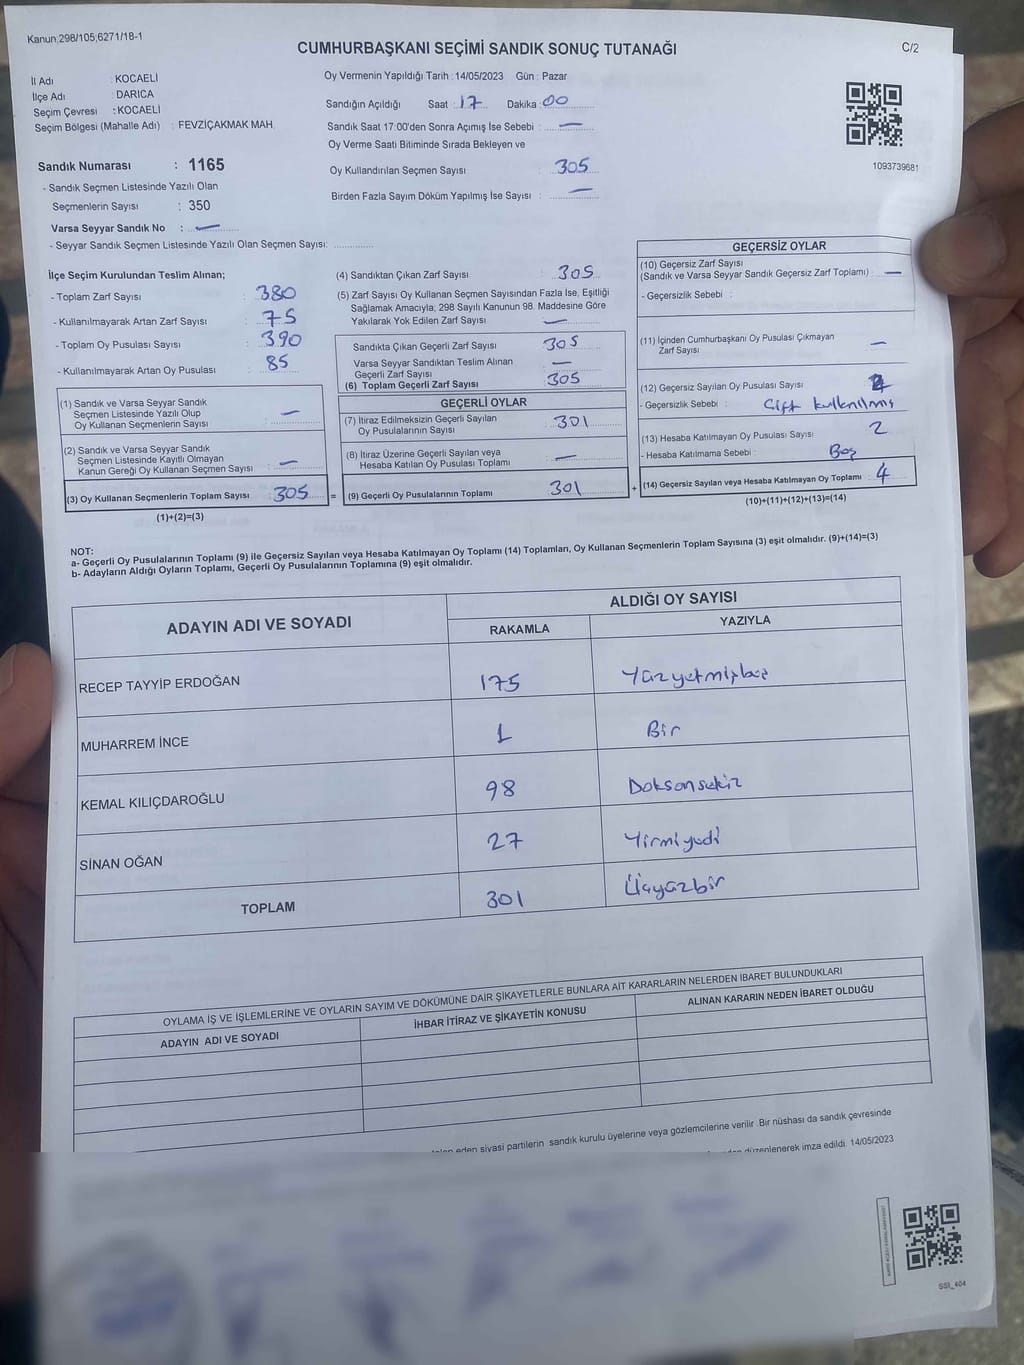 Kanun;298/105;6271/18-1
CUMHURBAŞKANI SEÇİMİ SANDIK SONUÇ TUTANAĞI
C/2
İl Adı : KOCAELİ
İlçe Adı : DARICA
Seçim Çevresi : KOCAELİ
Seçim Bölgesi (Mahalle Adı) : FEVZİÇAKMAK MAH.
Sandık Numarası : 1165
- Sandık Seçmen Listesinde Yazılı Olan
Seçmenlerin Sayısı : 350
Varsa Seyyar Sandık No : —
- Seyyar Sandık Seçmen Listesinde Yazılı Olan Seçmen Sayısı: ...............
Oy Vermenin Yapıldığı Tarih : 14/05/2023 Gün : Pazar
Sandığın Açıldığı Saat : 17 Dakika : 00
Sandık Saat 17:00'den Sonra Açımış İse Sebebi : —
Oy Verme Saati Bitiminde Sırada Bekleyen ve
Oy Kullandırılan Seçmen Sayısı : 305
Birden Fazla Sayım Döküm Yapılmış İse Sayısı : —
1093739681
İlçe Seçim Kurulundan Teslim Alınan;
- Toplam Zarf Sayısı : 380
- Kullanılmayarak Artan Zarf Sayısı : 75
- Toplam Oy Pusulası Sayısı : 390
- Kullanılmayarak Artan Oy Pusulası : 85
(1) Sandık ve Varsa Seyyar Sandık
Seçmen Listesinde Yazılı Olup
Oy Kullanan Seçmenlerin Sayısı : —
(2) Sandık ve Varsa Seyyar Sandık
Seçmen Listesinde Kayıtlı Olmayan
Kanun Gereği Oy Kullanan Seçmen Sayısı : —
(3) Oy Kullanan Seçmenlerin Toplam Sayısı : 305 =
(1)+(2)=(3)
(4) Sandıktan Çıkan Zarf Sayısı : 305
(5) Zarf Sayısı Oy Kullanan Seçmen Sayısından Fazla İse, Eşitliği
Sağlamak Amacıyla; 298 Sayılı Kanunun 98. Maddesine Göre
Yakılarak Yok Edilen Zarf Sayısı : —
Sandıkta Çıkan Geçerli Zarf Sayısı : 305
Varsa Seyyar Sandıktan Teslim Alınan
Geçerli Zarf Sayısı : —
(6) Toplam Geçerli Zarf Sayısı : 305
GEÇERLİ OYLAR
(7) İtiraz Edilmeksizin Geçerli Sayılan
Oy Pusulalarının Sayısı : 301
(8) İtiraz Üzerine Geçerli Sayılan veya
Hesaba Katılan Oy Pusulası Toplamı : —
(9) Geçerli Oy Pusulalarının Toplamı 301 +
GEÇERSİZ OYLAR
(10) Geçersiz Zarf Sayısı
(Sandık ve Varsa Seyyar Sandık Geçersiz Zarf Toplamı) : —
- Geçersizlik Sebebi :
(11) İçinden Cumhurbaşkanı Oy Pusulası Çıkmayan
Zarf Sayısı —
(12) Geçersiz Sayılan Oy Pusulası Sayısı 2
- Geçersizlik Sebebi : Çift kullanılmış
(13) Hesaba Katılmayan Oy Pusulası Sayısı 2
- Hesaba Katılmama Sebebi : Boş
(14) Geçersiz Sayılan veya Hesaba Katılmayan Oy Toplamı : 4
(10)+(11)+(12)+(13)=(14)
NOT:
a- Geçerli Oy Pusulalarının Toplamı (9) ile Geçersiz Sayılan veya Hesaba Katılmayan Oy Toplamı (14) Toplamları, Oy Kullanan Seçmenlerin Toplam Sayısına (3) eşit olmalıdır. (9)+(14)=(3)
b- Adayların Aldığı Oyların Toplamı, Geçerli Oy Pusulalarının Toplamına (9) eşit olmalıdır.
ADAYIN ADI VE SOYADI
ALDIĞI OY SAYISI
RAKAMLA YAZIYLA
RECEP TAYYİP ERDOĞAN 175 Yüzyetmişbeş
MUHARREM İNCE 1 Bir
KEMAL KILIÇDAROĞLU 98 Doksansekiz
SİNAN OĞAN 27 Yirmiyedi
TOPLAM 301 Üçyüzbir
OYLAMA İŞ VE İŞLEMLERİNE VE OYLARIN SAYIM VE DÖKÜMÜNE DAİR ŞİKAYETLERLE BUNLARA AİT KARARLARIN NELERDEN İBARET BULUNDUKLARI
ADAYIN ADI VE SOYADI İHBAR İTİRAZ VE ŞİKAYETİN KONUSU ALINAN KARARIN NEDEN İBARET OLDUĞU
eden siyasi partilerin sandık kurulu üyelerine veya gözlemcilerine verilir. Bir nüshası da sandık çevresinde
düzenlenerek imza edildi. 14/05/2023
SSİ_404